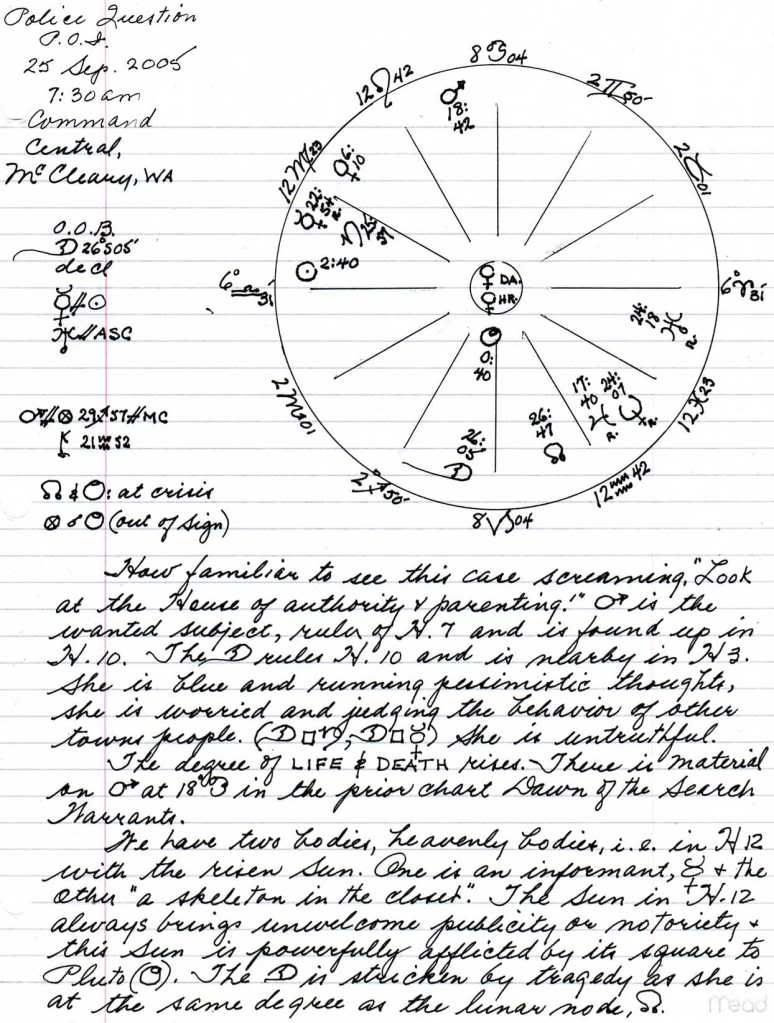 Police Question
P.O.I.
25 Sep. 2005
7:30am
Command
Central,
McCleary, WA
O.O.B.
☽ 26°S05'
decl
☿ // ☉
♓ // ASC
♂ // ⊗ 29♐57 // MC
⚷ 21♒52
☊ & ♇: at crisis
⊗ ☌ ♇ (out of sign)
8♋04
2♊50
2♉01
6°♈31
12♓23
12♒42
8♑04
2♐50
2♏01
6°♎31
12♍23
12♌42
♂ 18:42
♀ 6:10
☿ 22:
25:57
☉ 2:40
♀ DA.
♀ HR.
0:40
26:05
☽
26:47
☊
17:40
R.
24:07
R.
24:18
R.
How familiar to see this case screaming, "Look
at the House of authority & parenting!" ♂ is the
wanted subject, ruler of H.7 and is found up in
H.10. The ☽ rules H.10 and is nearby in H3.
She is blue and running pessimistic thoughts,
she is worried and judging the behavior of other
towns people. (☽□♄, ☽□☿) She is untruthful.
The degree of LIFE & DEATH rises. There is material
on ♂ at 18°♋ in the prior chart Dawn of the Search
Warrants.
We have two bodies, heavenly bodies, i.e. in H12
with the risen Sun. One is an informant, ☿ & the
other "a skeleton in the closet". The Sun in H.12
always brings unwelcome publicity or notoriety &
this Sun is powerfully afflicted by its square to
Pluto (♇). The ☽ is stricken by tragedy as she is
at the same degree as the lunar node, ☊.
Mead